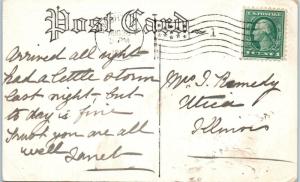 Post Card
1
Arrived all right
had a little storm
last night, but
to day is fine
Trust you are all
well Janet
Mrs. J. Remedy
Utica
Illinois